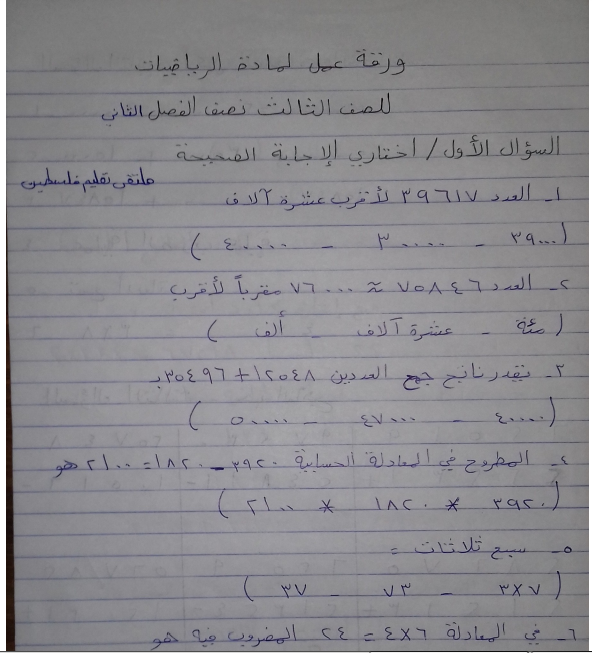 ورقة عمل لمادة الرياضيات
للصف الثالث نصف الفصل الثاني
السؤال الأول / اختاري الإجابة الصحيحة
ملتقى تعليم فلسطين
١- العدد ٣٩٦١٧ لأقرب عشرة آلاف
( ٣٩٠٠٠ - ٣٠٠٠٠ - ٤٠٠٠٠ )
٢- العدد ٧٥٨٤٦ ≈ ٧٦٠٠٠ مقرباً لأقرب
( مئة - عشرة آلاف - ألف )
٣- نقدر ناتج جمع العددين ١٢٥٤٨ + ٣٥٤٩٦ بـ
( ٤٠٠٠٠ - ٤٧٠٠٠ - ٥٠٠٠٠ )
٤- المطروح في المعادلة الحسابية ٣٩٢٠ - ١٨٢٠ = ٢١٠٠ هو
( ٣٩٢٠ * ١٨٢٠ * ٢١٠٠ )
٥- سبع ثلاثات =
( ٣×٧ - ٧٣ - ٣٧ )
٦- في المعادلة ٤×٦ = ٢٤ المضروب فيه هو